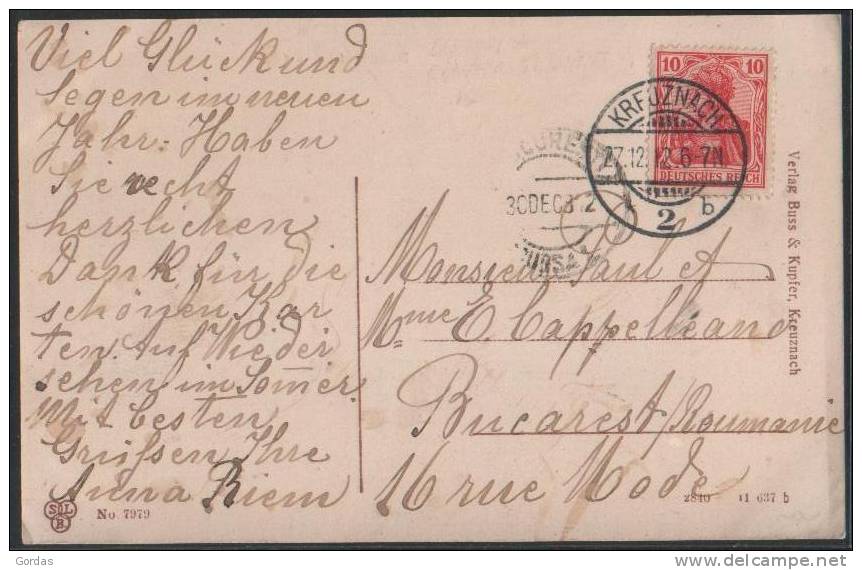 Viel Glück und
Segen im neuen
Jahr. Haben
Sie recht
herzlichen
Dank für die
schönen Kar
ten. Auf Wieder
sehen im Som̄er.
Mit besten
Grüßen Ihre
Anna Riem
10 10
DEUTSCHES REICH
KREUZNACH
27.12.12.6-7N
2 b
30DEC
Monsieur Paul et
Mme E. Cappelleanu
Bucarest/Roumanie
16 rue Mode
Verlag Buss & Kupfer, Kreuznach
S L B.
No. 7979
2840 11 637 b
Gordas
www.delcampe.net